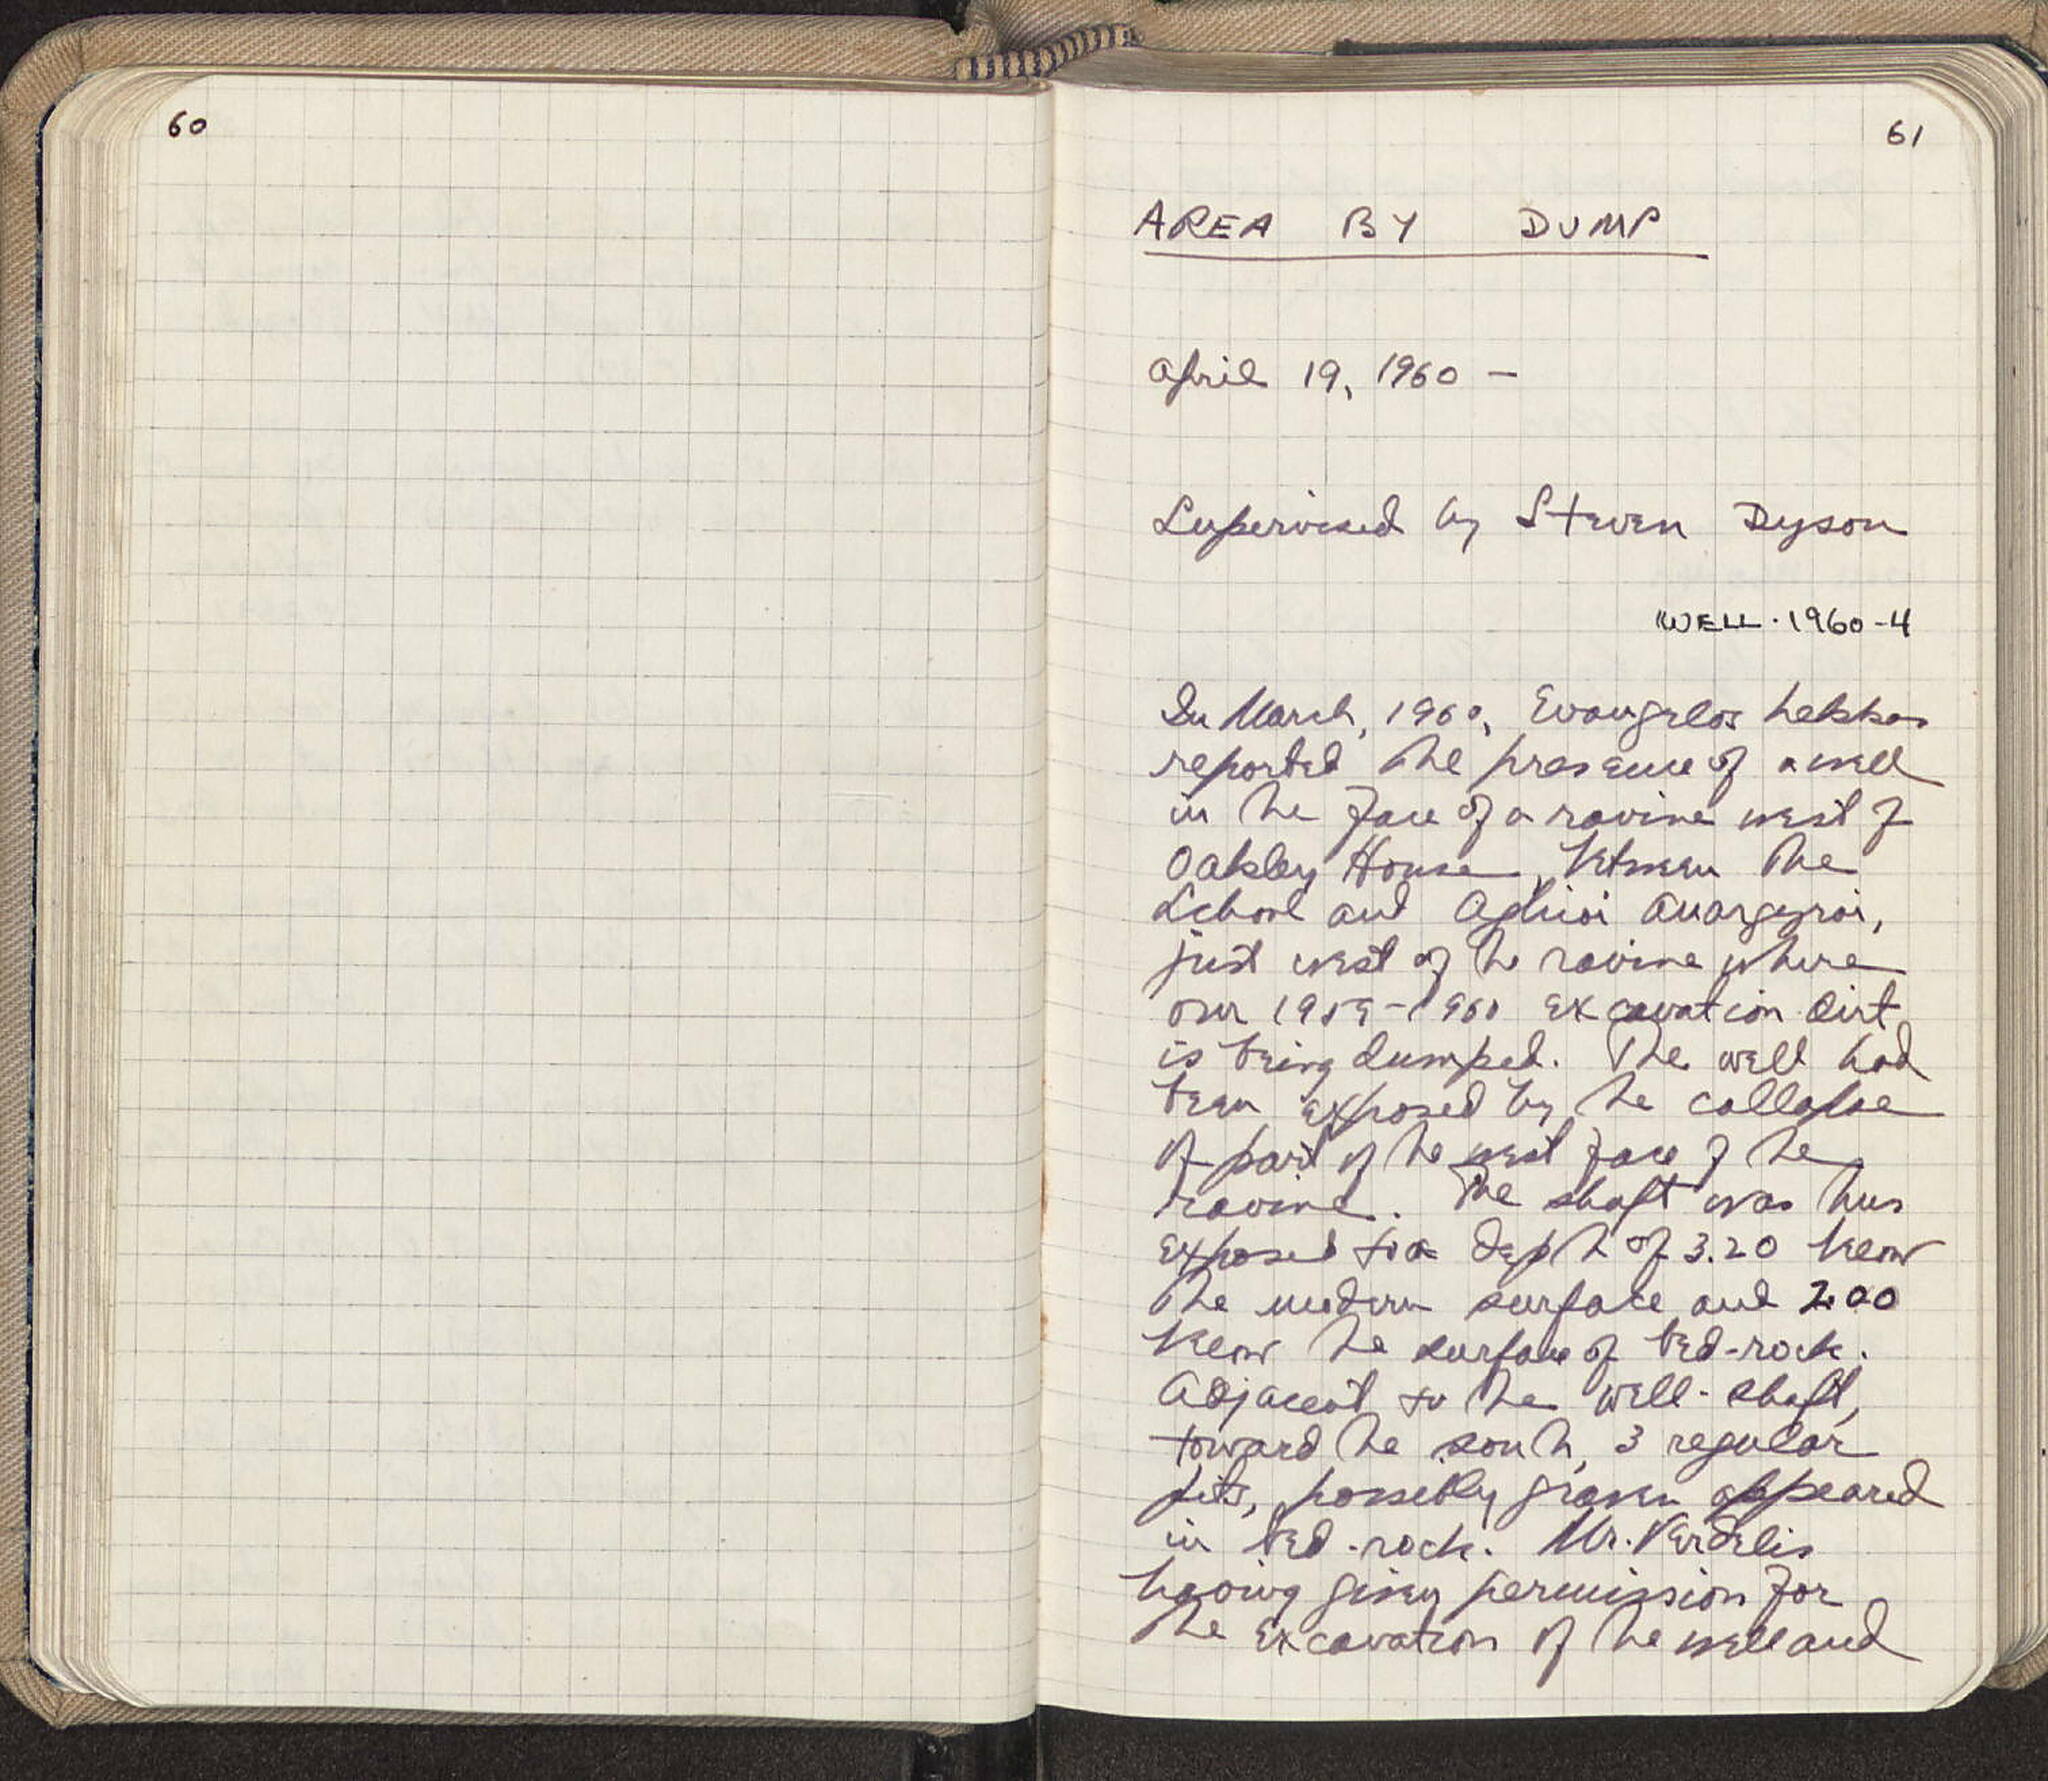 60
61
AREA BY DUMP
April 19, 1960 –
Supervised by Steven Dyson
WELL·1960-4
In March, 1960, Evangelos Lekkas
reported the presence of a well
in the face of a ravine west of
Oakley House, between the
School and Aghioi Anargyroi,
just west of the ravine where
our 1959-1960 excavation dirt
is being dumped. The well had
been exposed by the collapse
of part of the west face of the
ravine. The shaft was thus
exposed to a depth of 3.20 below
the modern surface and 2.00
below the surface of bed-rock.
Adjacent to the well-shaft,
toward the south, 3 regular
pits, possibly graves appeared
in bed-rock. Mr. Verdelis
having given permission for
the excavation of the well and